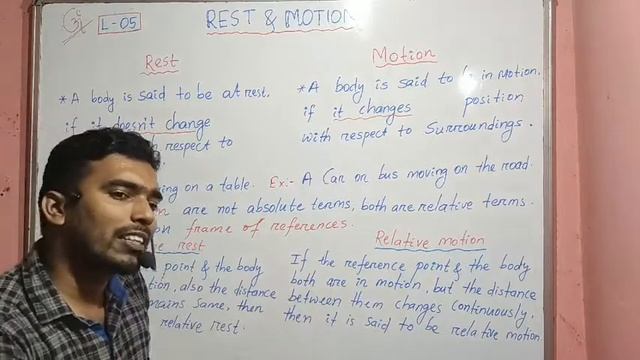 L-05
REST & MOTION
Rest
* A body is said to be at rest,
if it doesn't change
respect to
on a table.
Motion
* A body is said to in motion.
if it changes position
with respect to Surroundings.
Ex:- A Car or bus moving on the road.
are not absolute terms, both are relative terms.
on frame of references.
rest
point & the body
also the distance
same, then
relative rest.
Relative motion
If the reference point & the body
both are in motion, but the distance
between them changes continuously,
then it is said to be relative motion.